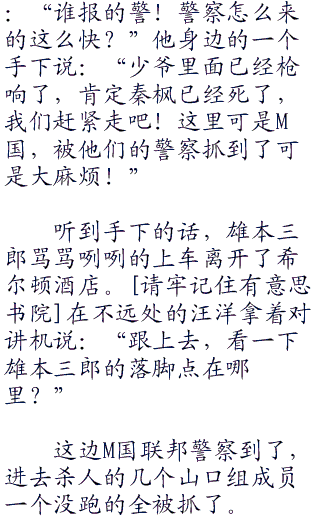 ：“谁报的警！警察怎么来
的这么快？”他身边的一个
手下说：“少爷里面已经枪
响了，肯定秦枫已经死了，
我们赶紧走吧！这里可是M
国，被他们的警察抓到了可
是大麻烦！”
听到手下的话，雄本三
郎骂骂咧咧的上车离开了希
尔顿酒店。[请牢记住有意思
书院]在不远处的汪洋拿着对
讲机说：“跟上去，看一下
雄本三郎的落脚点在哪
里？”
这边M国联邦警察到了，
进去杀人的几个山口组成员
一个没跑的全被抓了。